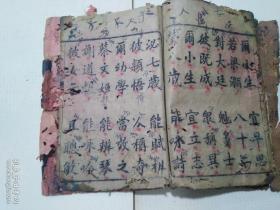 爾小生 宜早思
若梁灝 八十二
對大廷 魁多士
彼既成 衆稱異
爾小生 宜立志
八歲 能咏詩
泌七歲 能賦棋
彼穎悟 人稱奇
爾幼學 當效之
蔡文姬 能辨琴
謝道韞 能咏吟
彼女子 且聰敏